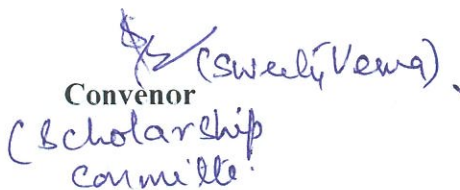 (Sweety Verma).
Convenor
(Scholarship
Committe.